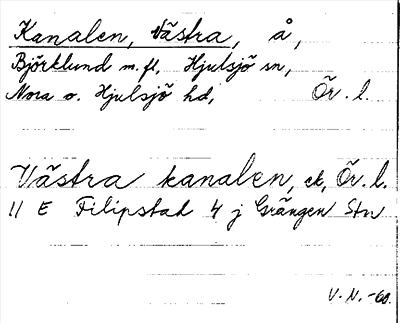 Kanalen, Västra, å,
Björklund m.fl. Hjulsjö sn,
Nora o. Hjulsjö hd, Ör. l.
Västra kanalen, ek, Ör. l.
11 E Filipstad 4 j Grängen Stn
V. N. -60.